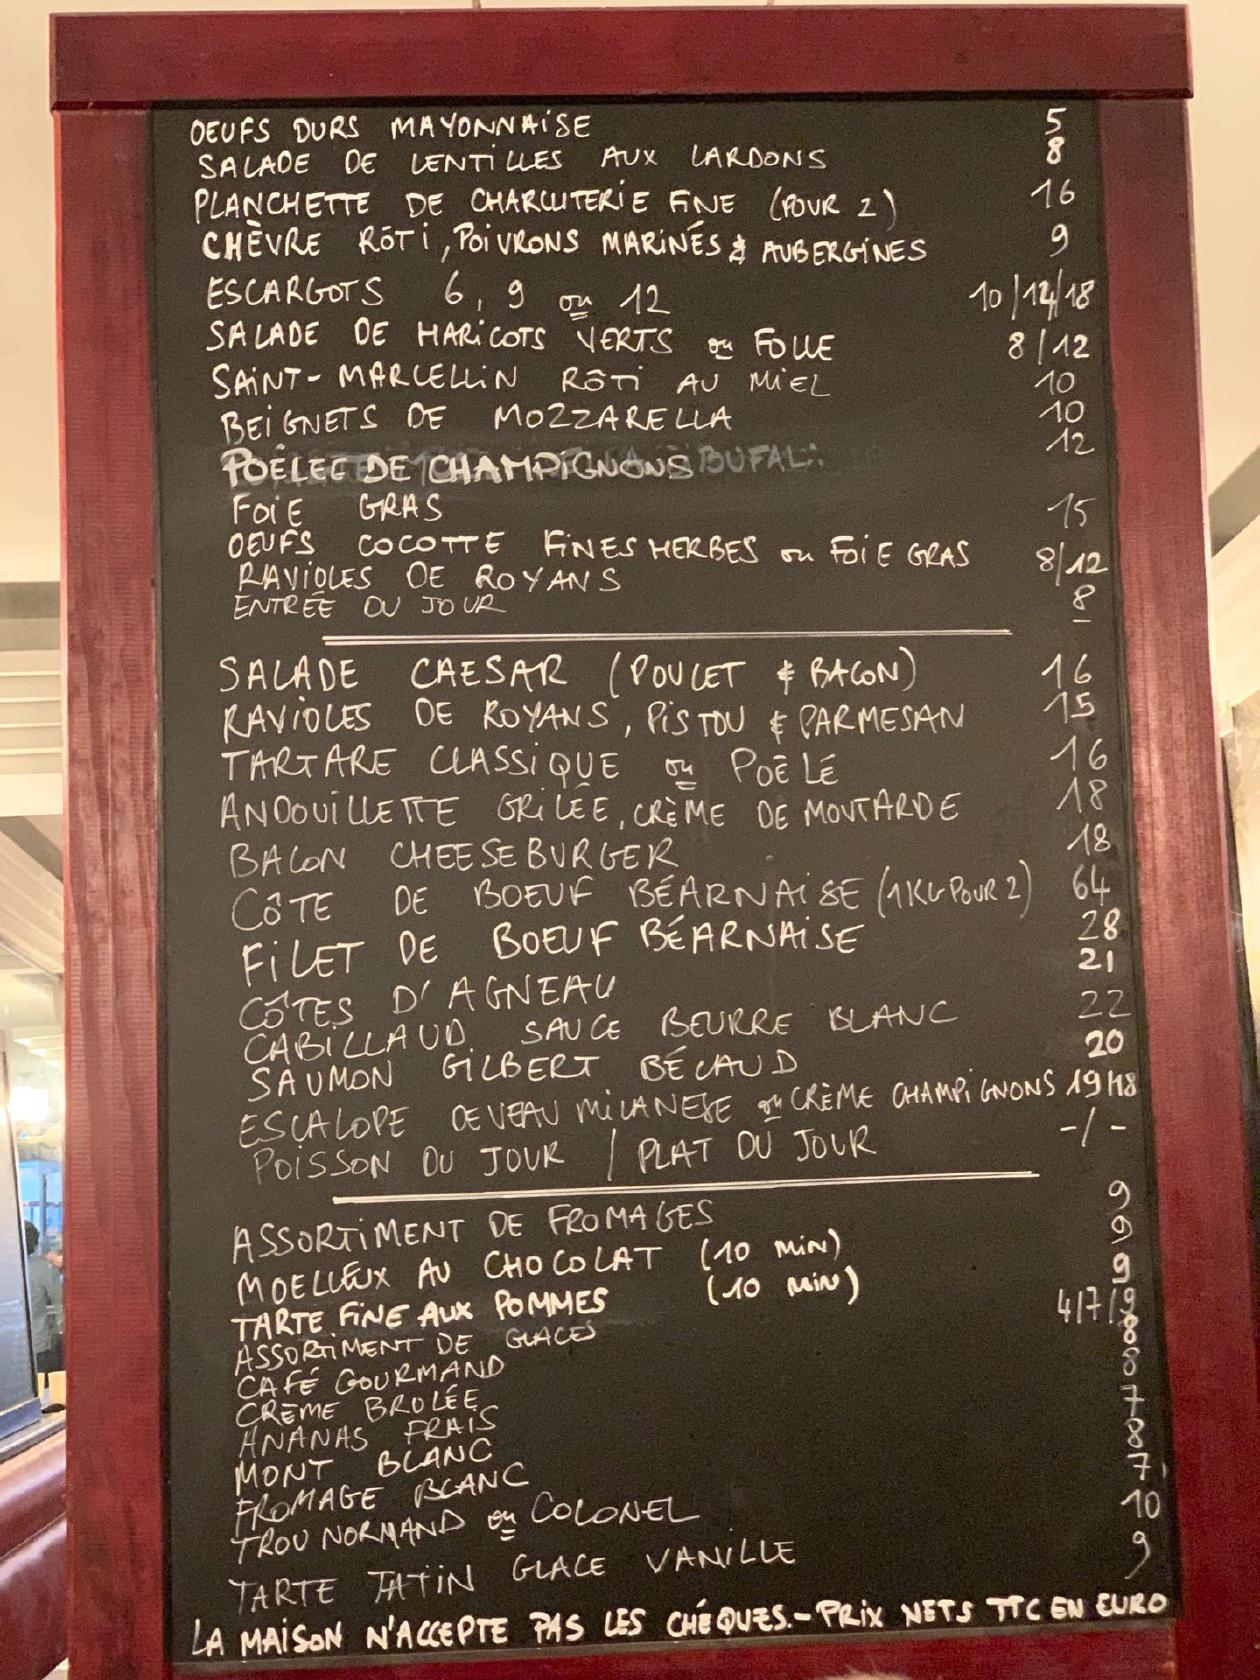 OEUFS DURS MAYONNAISE 5
SALADE DE LENTILLES AUX LARDONS 8
PLANCHETTE DE CHARCUTERIE FINE (POUR 2) 16
CHÈVRE RÔTI, POIVRONS MARINÉS & AUBERGINES 9
ESCARGOTS 6, 9 ou 12 10/14/18
SALADE DE HARICOTS VERTS ou FOLLE 8/12
SAINT-MARCELLIN RÔTI AU MIEL 10
BEIGNETS DE MOZZARELLA 10
POÊLEE DE CHAMPIGNONS 12
FOIE GRAS 15
OEUFS COCOTTE FINES HERBES ou FOIE GRAS 8/12
RAVIOLES DE ROYANS 8
ENTRÉE DU JOUR -
SALADE CAESAR (POULET & BACON) 16
RAVIOLES DE ROYANS, PISTOU & PARMESAN 15
TARTARE CLASSIQUE ou POÊLÉ 16
ANDOUILLETTE GRILÉE, CRÈME DE MOUTARDE 18
BACON CHEESEBURGER 18
CÔTE DE BOEUF BÉARNAISE (1KG POUR 2) 64
FILET DE BOEUF BÉARNAISE 28
CÔTES D'AGNEAU 21
CABILLAUD SAUCE BEURRE BLANC 22
SAUMON GILBERT BÉCAUD 20
ESCALOPE DE VEAU MILANESE ou CRÈME CHAMPIGNONS 19/18
POISSON DU JOUR / PLAT DU JOUR -/-
ASSORTIMENT DE FROMAGES 9
MOELLEUX AU CHOCOLAT (10 MIN) 9
TARTE FINE AUX POMMES (10 MIN) 9
ASSORTIMENT DE GLACES 4/7/9
CAFÉ GOURMAND 8
CRÈME BRÛLÉE 8
ANANAS FRAIS 7
MONT BLANC 8
FROMAGE BLANC 7
TROU NORMAND ou COLONEL 10
TARTE TATIN GLACE VANILLE 9
LA MAISON N'ACCEPTE PAS LES CHÉQUES.- PRIX NETS TTC EN EURO